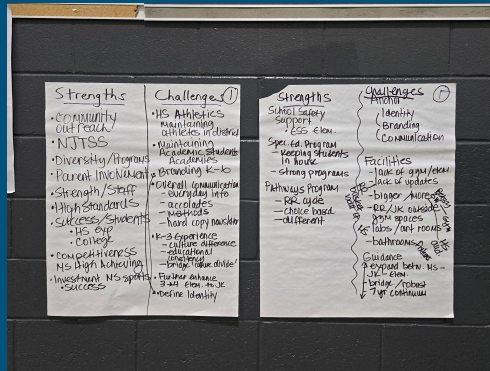 Strengths
• Community
outreach
• NJTSS
• Diversity/Programs
• Parent Involvment
• Strength/Staff
• High Standards
• Success/Students
• HS exp
• College
• Competitiveness
MS High Achieving
• Investment MS sports
• Success
Challenges 1
• HS Athletics
maintaining
athletes in district
• Maintaining
Academic Students
Academies
• Branding K-6
• Overall communication
- everyday info
- accolates
- methods
- hard copy newsletter
• K-3 Experience
- culture difference
- educational
consistency
- bridge culture divide
• Further enhance
3→4 Elem. to JK
• Define Identity
Strengths
School Safety
Support
• ESS Elem.
Spec. Ed. Program
- Keeping students
in house
- strong programs
Pathways Program
- RR cycle
- choice based
- different
Challenges
Anchor
Identity
Branding
Communication
Facilities
- lack of gym/elem
- lack of updates
- bigger/more
- RR/JK outside
gym spaces
- labs/art rooms
- bathrooms
Guidance
expand betw. MS-
JK - Elem.
- bridge/robust
7 yr continuum